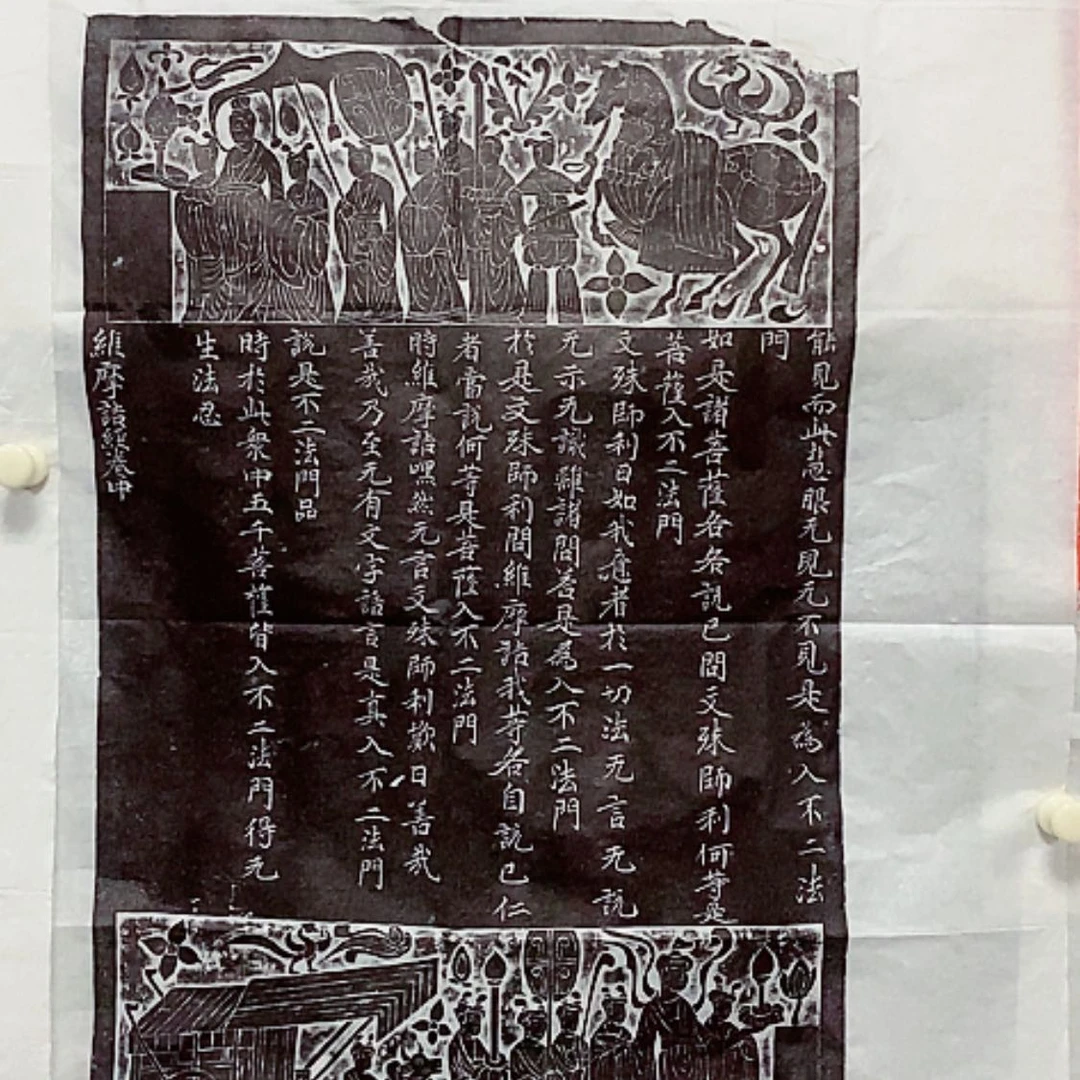 能見而此慧眼无見无不見是為入不二法
門
如是諸菩薩各各說已問文殊師利何等是
菩薩入不二法門
文殊師利曰如我意者於一切法无言无說
无示无識離諸問荅是為入不二法門
於是文殊師利問維摩詰我等各自說已仁
者當說何等是菩薩入不二法門
時維摩詰嘿然无言文殊師利歎曰善哉
善哉乃至无有文字語言是真入不二法門
說是不二法門品
時於此衆中五千菩薩皆入不二法門得无
生法忍
維摩詰經卷中